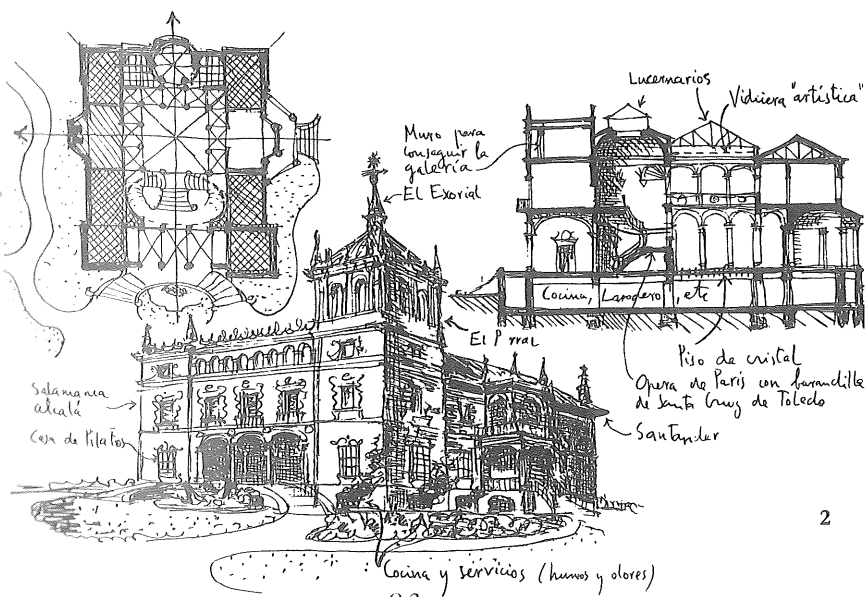 Lucernarios
Vidriera "artística"
Muro para
conseguir la
galería
El Escorial
Cocina, Lavadero, etc
El Parral
Piso de cristal
Opera de París con barandilla
de Santa Cruz de Toledo
Santander
Salamanca
alcalá
Casa de Pilatos
2
Cocina y servicios (humos y olores)